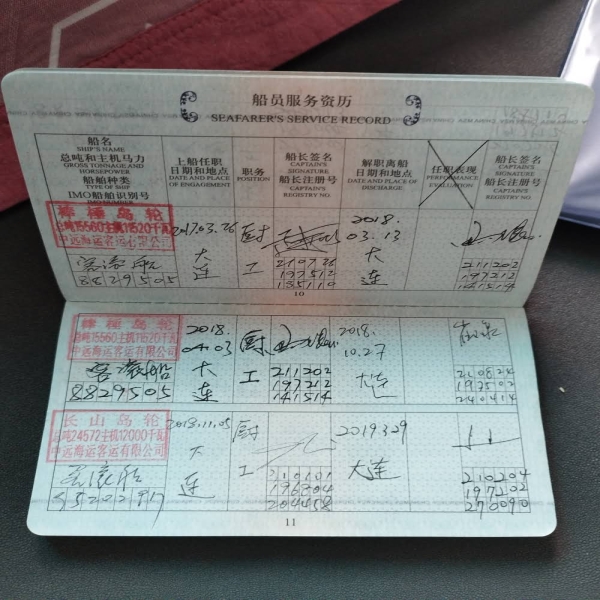 船员服务资历
SEAFARER'S SERVICE RECORD
船名
SHIP'S NAME
总吨和主机马力
GROSS TONNAGE AND
HORSEPOWER
船舶种类
TYPE OF SHIP
IMO船舶识别号
上船任职
日期和地点
DATE AND PLACE
OF ENGAGEMENT
职务
POSITION
船长签名
CAPTAIN'S
船长注册号
CAPTAIN'S
REGISTRY NO.
解职离船
日期和地点
DATE AND PLACE OF
DISCHARGE
任职表现
PERFORMANCE
EVALUATION
船长签名
CAPTAIN'S
船长注册号
CAPTAIN'S
REGISTRY NO.
棒棰岛轮
总吨15560主机11520千瓦
中远海运客运有限公司
客滚船
8829505
2017.03.26
大
连
厨
工
210726
197512
185110
2018.
03.13
大
连
211202
197212
141514
10
棒棰岛轮
总吨15560主机11520千瓦
中远海运客运有限公司
客滚船
8829505
2018.
04.03
大
连
厨
工
211202
197212
141514
2018.
10.27
大连
210824
197502
240414
长山岛轮
总吨24572主机12000千瓦
中远海运客运有限公司
客滚船
2018.11.05
大
连
厨
工
210101
204458
2019.3.29
大连
210204
197202
270090
11